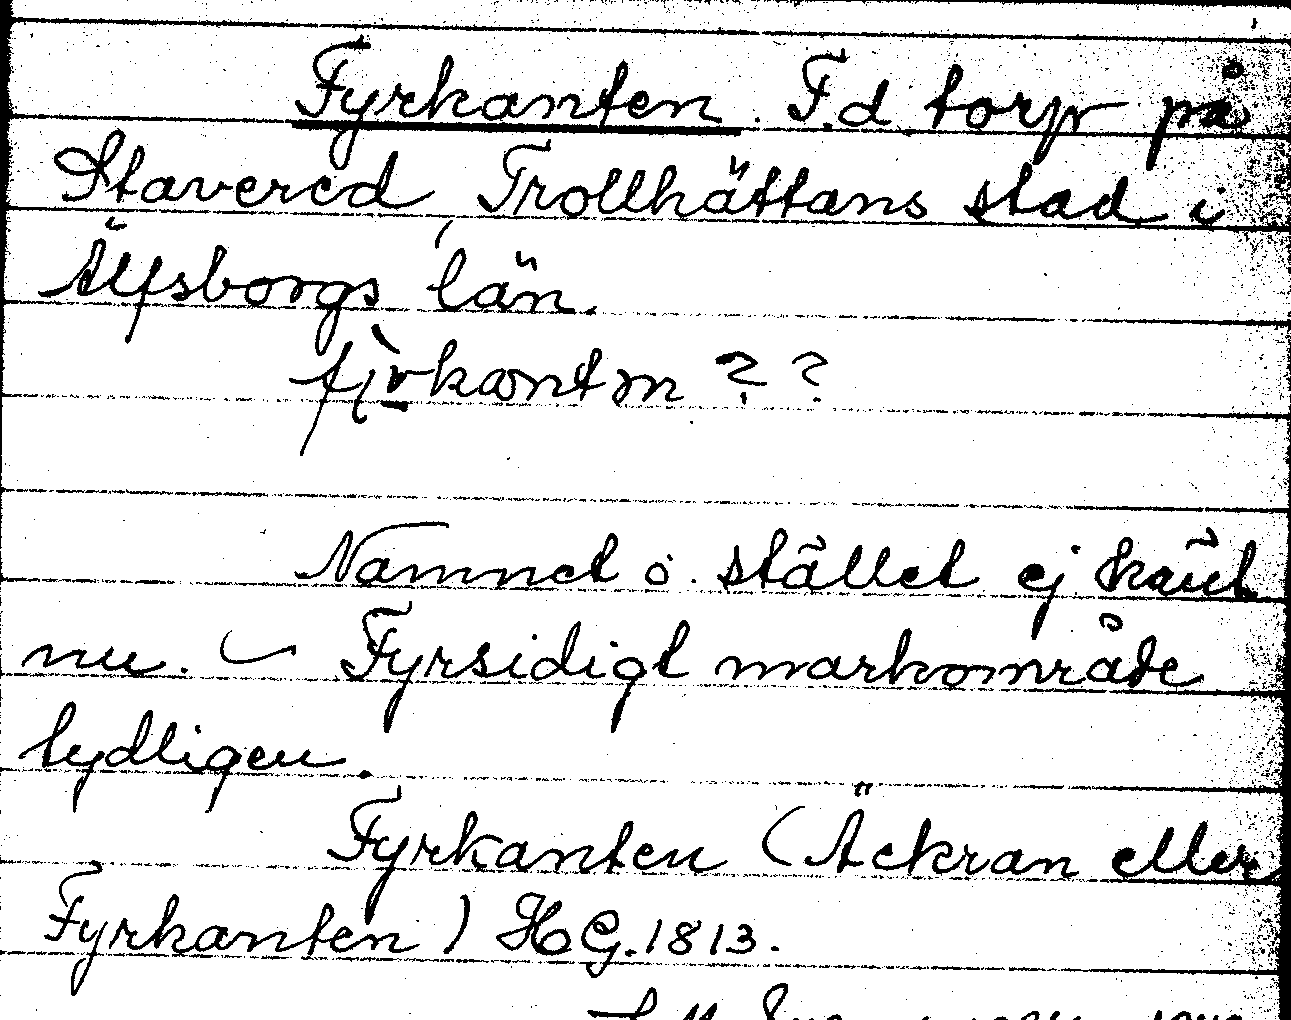 Fyrkanten. F.d. torp på
Stavered, Trollhättans stad i
Älfsborgs län.
Namnet o. stället ej känt
nu. – Fyrsidigt markområde
tydligen.
Fyrkanten (Äckran eller
Fyrkanten) HG. 1813.